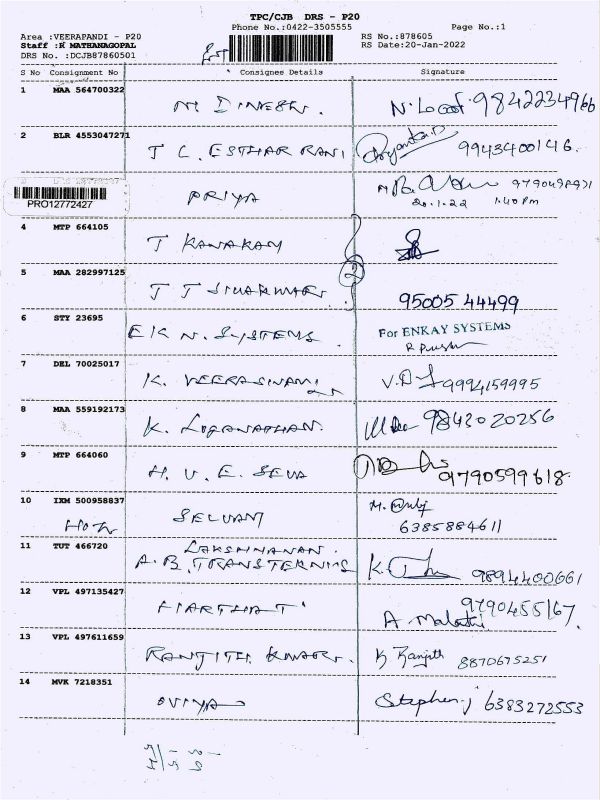 TPC/CJB DRS - P20
Phone No.:0422-3505555 Page No.:1
Area :VEERAPANDI - P20 RS No.:878605
Staff :K MATHANAGOPAL RS Date:20-Jan-2022
DRS No. :DCJB87860501
S No Consignment No Consignee Details Signature
1 MAA 564700322 M. DINESH. 9842234966
2 BLR 4553047271 J C. ESTHAR RANI 9943400146.
PRO12772427 PRIYA
20.1.22 1.40 pm
4 MTP 664105 T KANAKAM
5 MAA 282997125 T T SIVAKUMAR. 2 95005 44499
6 STY 23695 E K N. SYSTEMS For ENKAY SYSTEMS
7 DEL 70025017 K. VEERASWAMI 9994159995
8 MAA 559192173 K. LOGANATHAN. 98430 20256
9 MTP 664060 H. U. E. SEVA 9790599618.
10 IXM 500958837 SELVAM 6385884611
11 TUT 466720 LAKSHMANAN. 9894400661
A. B.
12 VPL 497135427 HARTHA T 9790455167.
A. Malathi
13 VPL 497611659 RANJITH KUMAR. K Ranjith 8870675251
14 MVK 7218351 OVIYA Stephen.j 6383272553